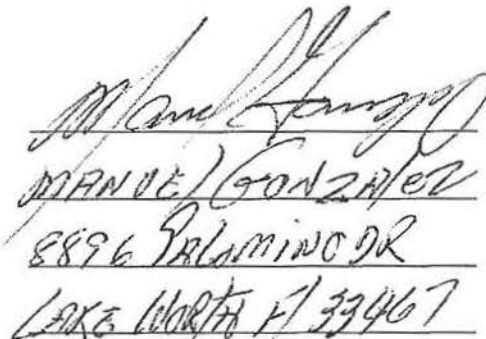 Manuel Gonzalez
MANUEL GONZALEZ
8896 PALOMINO DR
LAKE WORTH Fl 33467